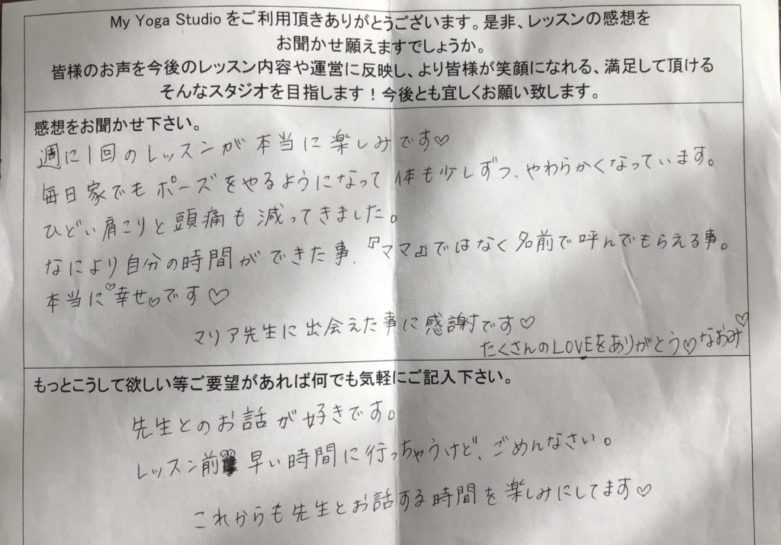 My Yoga Studio をご利用頂きありがとうございます。是非、レッスンの感想を
お聞かせ願えますでしょうか。
皆様のお声を今後のレッスン内容や運営に反映し、より皆様が笑顔になれる、満足して頂ける
そんなスタジオを目指します！今後とも宜しくお願い致します。
感想をお聞かせ下さい。
週に1回のレッスンが本当に楽しみです♡
毎日家でもポーズをやるようになって体も少しずつ、やわらかくなっています。
ひどい肩こりと頭痛も減ってきました。
なにより自分の時間ができた事、『ママ』ではなく名前で呼んでもらえる事。
本当に♡幸せ♡です♡
マリア先生に出会えた事に感謝です♡
たくさんのLOVEをありがとう♡なおみ♡
もっとこうして欲しい等ご要望があれば何でも気軽にご記入下さい。
先生とのお話が好きです。
レッスン前 早い時間に行っちゃうけど、ごめんなさい。
これからも先生とお話する時間を楽しみにしてます♡